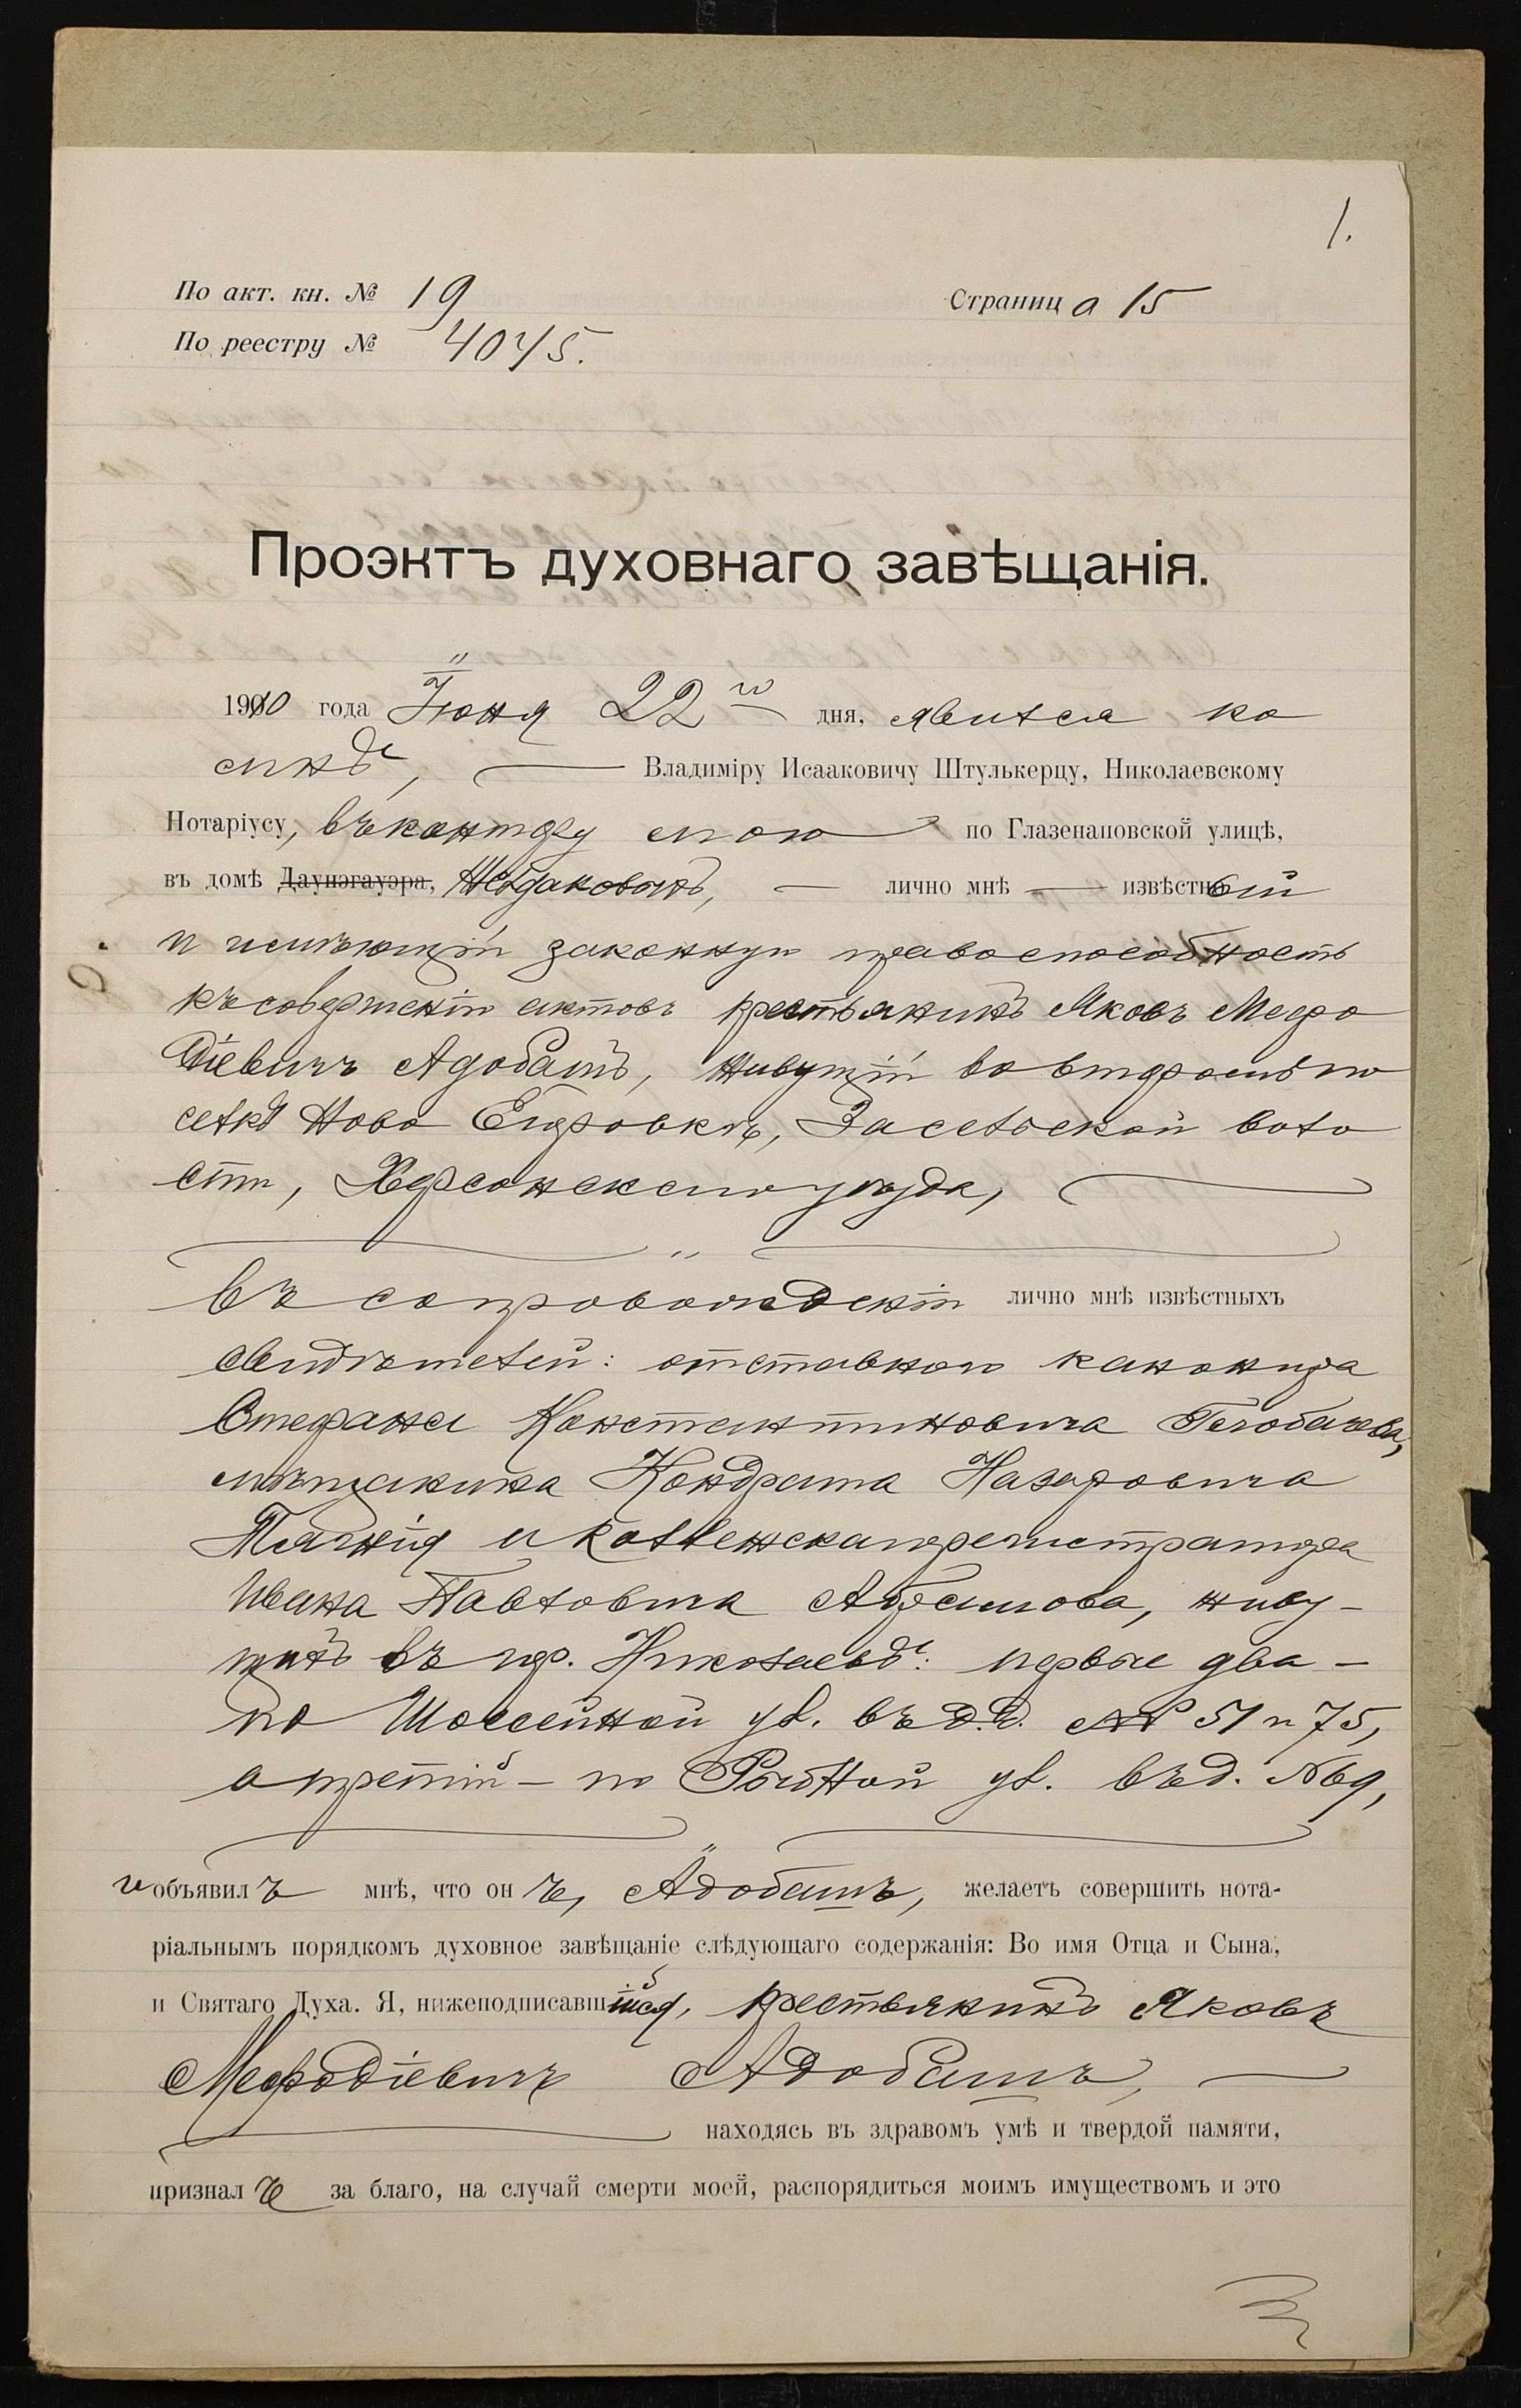 1.
По акт. кн. № 19
Страница 15
По реестру № 4045.
Проэктъ духовнаго завѣщанія.
1910 года Іюня 22го дня, явился ко
мнѣ, Владиміру Исааковичу Штулькерцу, Николаевскому
Нотаріусу, въ контору мою по Глазенаповской улицѣ,
въ домѣ Даунэгауэра, лично мнѣ извѣстный
и имѣющій законную правоспособность
къ совершенію актовъ крестьянинъ Яковъ Мефо
діевичъ Адобашъ, живущій во второмъ по
селкѣ Ново Егоровкѣ, Засельской воло
сти, Херсонскаго уѣзда,
въ сопровожденіи лично мнѣ извѣстныхъ
свидѣтелей: отставного канонира
Стефана Константиновича
мѣщанина Кондрата Назаровича
и коллежскаго регистратора
Ивана Павловича Абрамова, живу-
щихъ въ гор. Николаевѣ: первые два -
по Шоссейной ул. въ д.д. №№ 51 и 75,
а третій - по Рыбной ул. въ д. № 69,
и объявилъ мнѣ, что онъ, Адобашъ, желаетъ совершить нота-
ріальнымъ порядкомъ духовное завѣщаніе слѣдующаго содержанія: Во имя Отца и Сына,
и Святаго Духа. Я, нижеподписавшійся, крестьянинъ Яковъ
Мефодіевичъ Адобашъ,
находясь въ здравомъ умѣ и твердой памяти,
призналъ за благо, на случай смерти моей, распорядиться моимъ имуществомъ и это